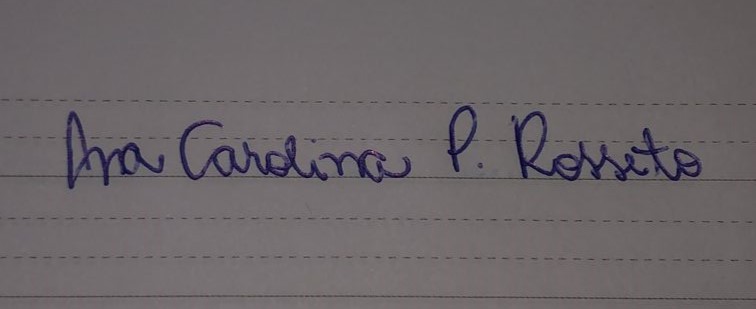 Ana Carolina P. Rosseto